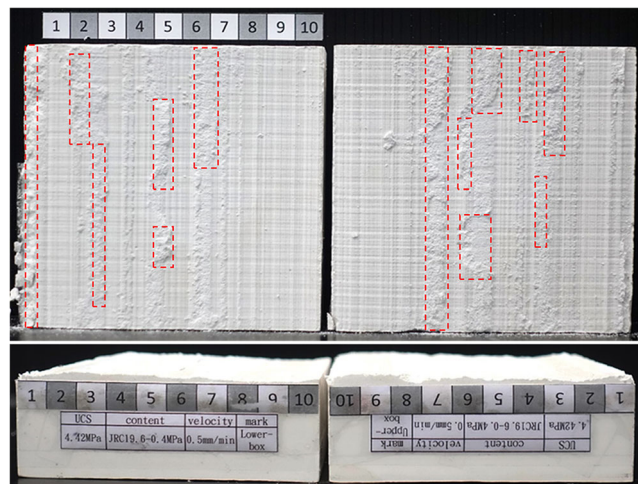 1 2 3 4 5 6 7 8 9 10
1 2 3 4 5 6 7 8 9 10
UCS content velocity mark
4.42MPa JRC19.6-0.4MPa 0.5mm/min Lower-
box
10 9 8 7 6 5 4 3 2 1
UCS content velocity mark
4.42MPa JRC19.6-0.4MPa 0.5mm/min Upper-
box